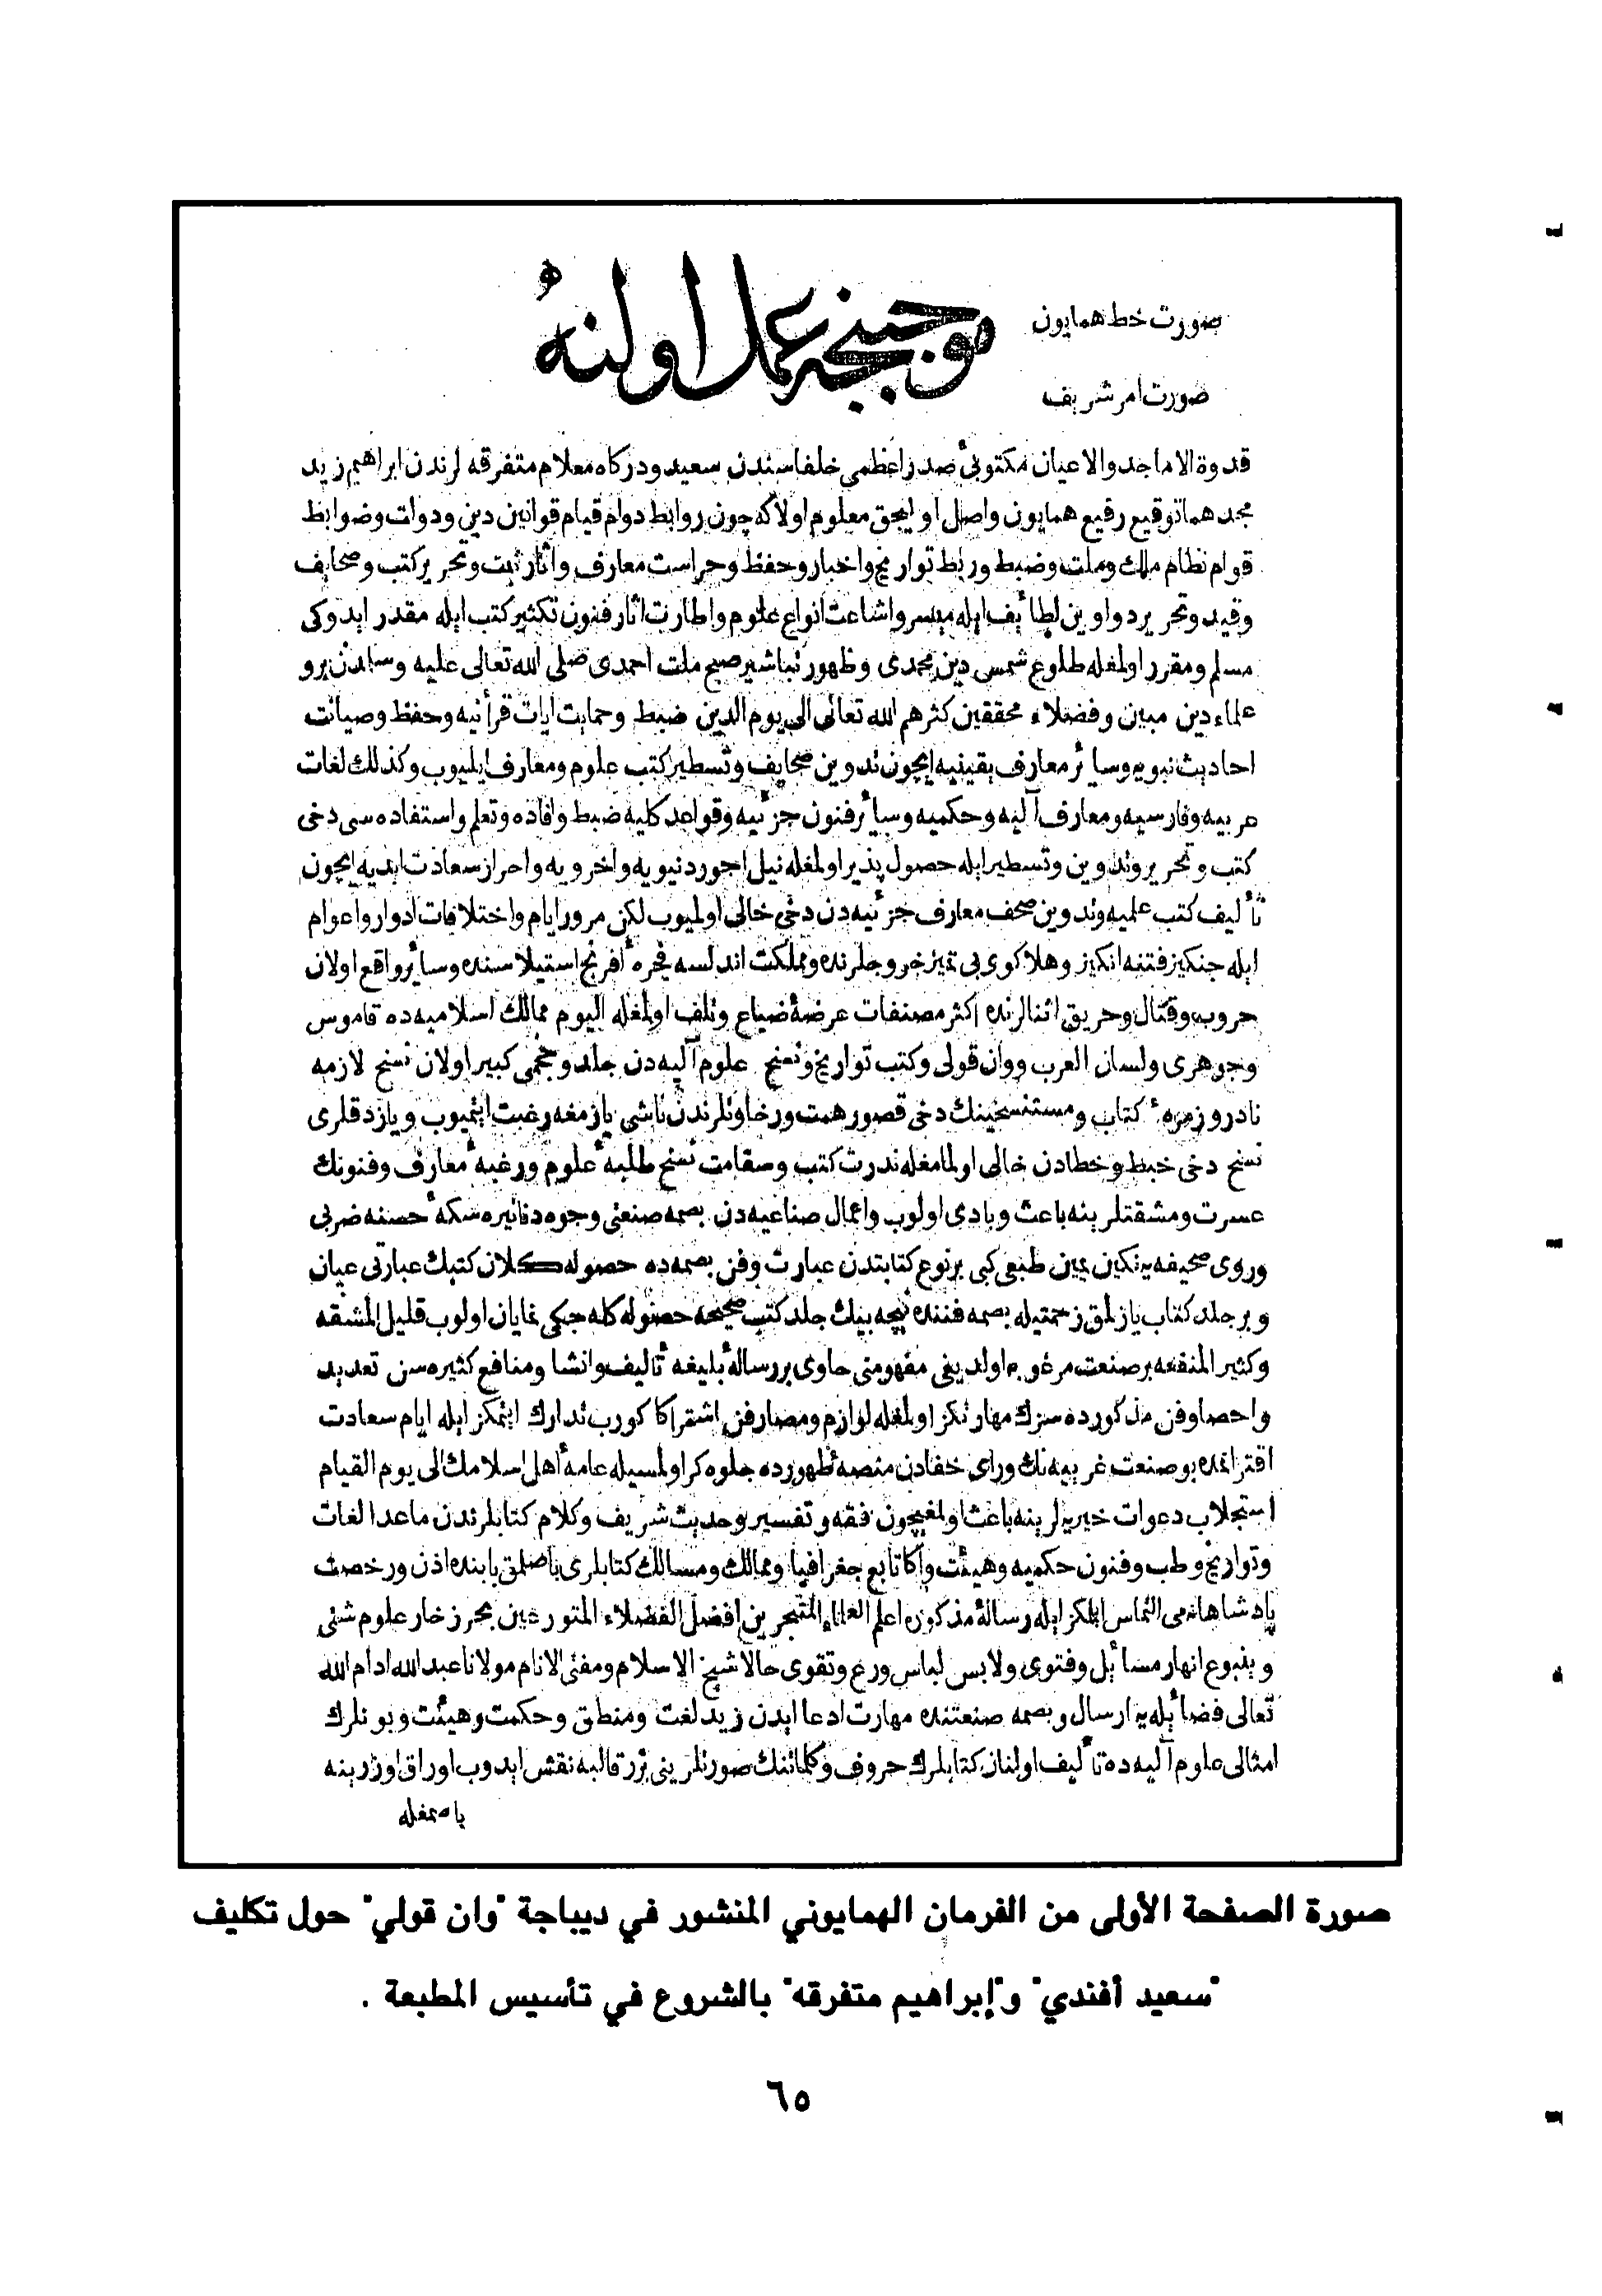 صورت خط همايون
موجبنجه عمل اولنه
صورت امر شريف
قدوة الاماجد والاعيان مكتوبئ صدر اعظمى خلفاسندن سعيد ودركاه معلام متفرقه لرندن ابراهيم زيد
مجدهما توقيع رفيع همايون واصل اوليجق معلوم اولاكه چون روابط دوام قيام قوانين دين ودولت وضوابط
قوام نظام ملك وملت وضبط وربط تواريخ واخبار وحفظ وحراست معارف وآثار ثبت وتحرير كتب وصحايف
وقيد وتحرير دواوين لطائف ايله ميسر واشاعت انواع علوم واطارت اثار فنون تكثير كتب ايله مقدر ايدوكى
مسلم ومقرر اولمغله طلوع شمس دين محمدى وظهور تباشير صبح ملت احمدى صلى الله تعالى عليه وسلمدن برو
علماء دين مبين وفضلاء محققين كثرهم الله تعالى الى يوم الدين ضبط وحمايت ايات قرأنيه وحفظ وصيانت
احاديث نبويه وسائر معارف يقينيه ايچون تدوين صحايف وتسطير كتب علوم ومعارف ايليوب وكذلك لغات
عربيه وفارسيه ومعارف آليه وحكميه وسائر فنون جزئيه وقواعد كليه ضبط وافاده وتعلم واستفاده سى دخى
كتب وتحرير وتدوين وتسطير ايله حصول پذير اولمغله نيل اجور دنيويه واخرويه واحراز سعادت ابديه ايچون
تأليف كتب علميه وتدوين صحف معارف جزئيه دن دخى خالى اولميوب لكن مرور ايام واختلافات ادوار واعوام
ايله جنكيز فتنه انكيز وهلاكوى بى تميز خروجلرنده ومملكت اندلسه فجرهٔ افرنج استيلاسنده وسائر واقع اولان
حروب وقتال وحريق اثنالرنده اكثر مصنفات عرضهٔ ضياع وتلف اولمغله اليوم ممالك اسلاميه ده قاموس
وجوهرى ولسان العرب ووان قولى وكتب تواريخ ونسخ علوم آليه دن جلد وحجمى كبير اولان نسخ لازمه
نادر وزمرهٔ كتاب ومستنسخينك دخى قصور همت ورخاوتلرندن ناشى يازمغه رغبت ايتميوب ويازدقلرى
نسخ دخى خبط وخطادن خالى اولمامغله ندرت كتب وسقامت نسخ طلبهٔ علوم ورغبهٔ معارف وفنونك
عسرت ومشقتلرينه باعث وبادى اولوب واعمال صناعيه دن بصمه صنعتى وجوه دنانيره سكهٔ حسنه ضربى
وروى صحيفه يه نكين يمين طبعى كبى برنوع كتابتدن عبارت وفن بصمه ده حصوله كلان كتبك عبارتى عيان
وبر جلد كتاب يازلمق زحمتيله بصمه فننده نيچه بيك جلد كتب صحيحه حصوله كله جكى نمايان اولوب قليل المشقه
وكثير المنفعه بر صنعت مرغوبه اولديغى مفهومنى حاوى بر رسالهٔ بليغه تأليف وانشا ومنافع كثيره سن تعديد
واحصا وفن مذكورده سزك مهارتكز اولمغله لوازم ومصارفن اشتراكا كوروب تدارك ايتمكز ايله ايام سعادت
اقترانمده بو صنعت غريبه نك وراى خفادن منصهٔ ظهورده جلوه كر اولمسيله عامهٔ اهل اسلامك الى يوم القيام
استجلاب دعوات خيريه لرينه باعث اولمغيچون فقه وتفسير وحديث شريف وكلام كتابلرندن ماعدا لغات
وتواريخ وطب وفنون حكميه وهيئت واكا تابع جغرافيا وممالك ومسالك كتابلرى باصلمق بابنده اذن ورخصت
پادشاهانه مى التماس ايلمكز ايله رسالهٔ مذكوره اعلم العلماء المتبحرين افضل الفضلاء المتورعين بحر زخار علوم شتى
وينبوع انهار مسائل وفتوى ولابس لباس ورع وتقوى حالا شيخ الاسلام ومفتئ الانام مولانا عبدالله ادام الله
تعالى فضائله يه ارسال وبصمه صنعتنده مهارت ادعا ايدن زيد لغت ومنطق وحكمت وهيئت وبونلرك
امثالى علوم آليه ده تأليف اولنان كتابلرك حروف وكلماتنك صورتلرينى برر قالبه نقش ايدوب اوراق اوزرينه
باصمغله
صورة الصفحة الأولى من الفرمان الهمايوني المنشور في ديباجة "وان قولي" حول تكليف
"سعيد أفندي" و"إبراهيم متفرقه" بالشروع في تأسيس المطبعة .
٦٥